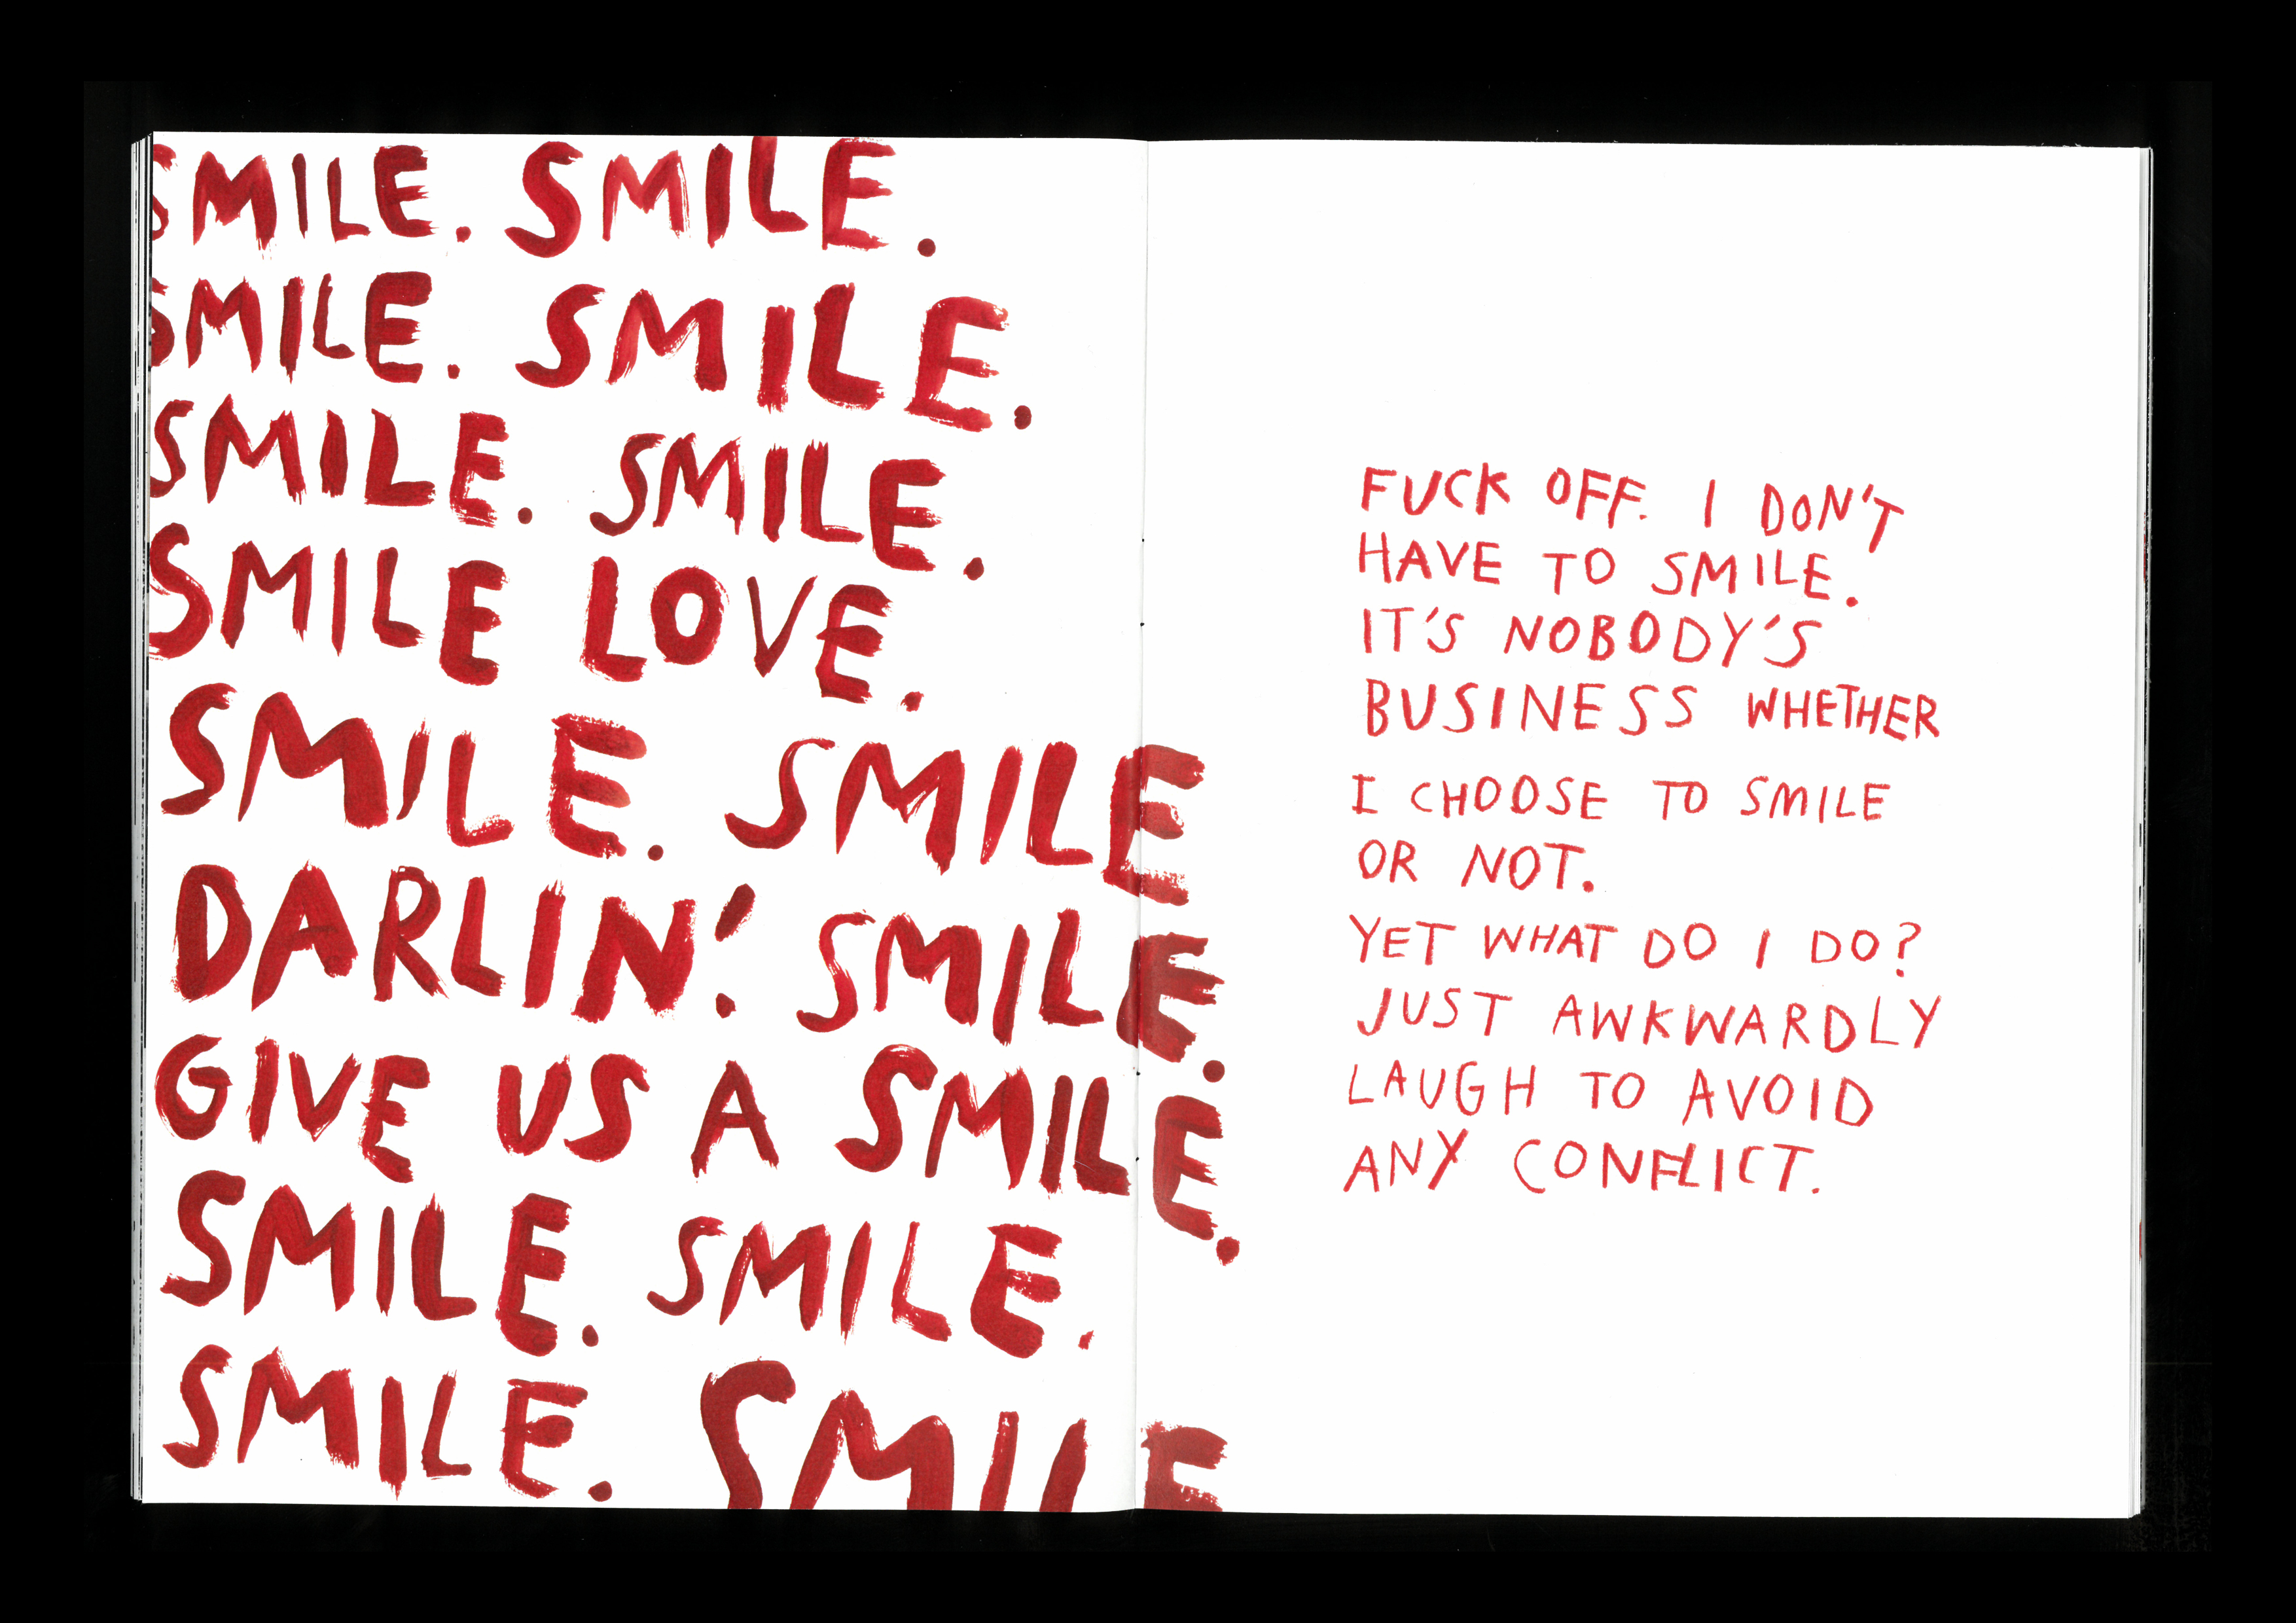 SMILE. SMILE.
SMILE. SMILE.
SMILE. SMILE.
SMILE LOVE.
SMILE. SMILE
DARLIN'. SMILE.
GIVE US A SMILE.
SMILE. SMILE.
SMILE. SMILE
FUCK OFF. I DON'T
HAVE TO SMILE.
IT'S NOBODY'S
BUSINESS WHETHER
I CHOOSE TO SMILE
OR NOT.
YET WHAT DO I DO?
JUST AWKWARDLY
LAUGH TO AVOID
ANY CONFLICT.